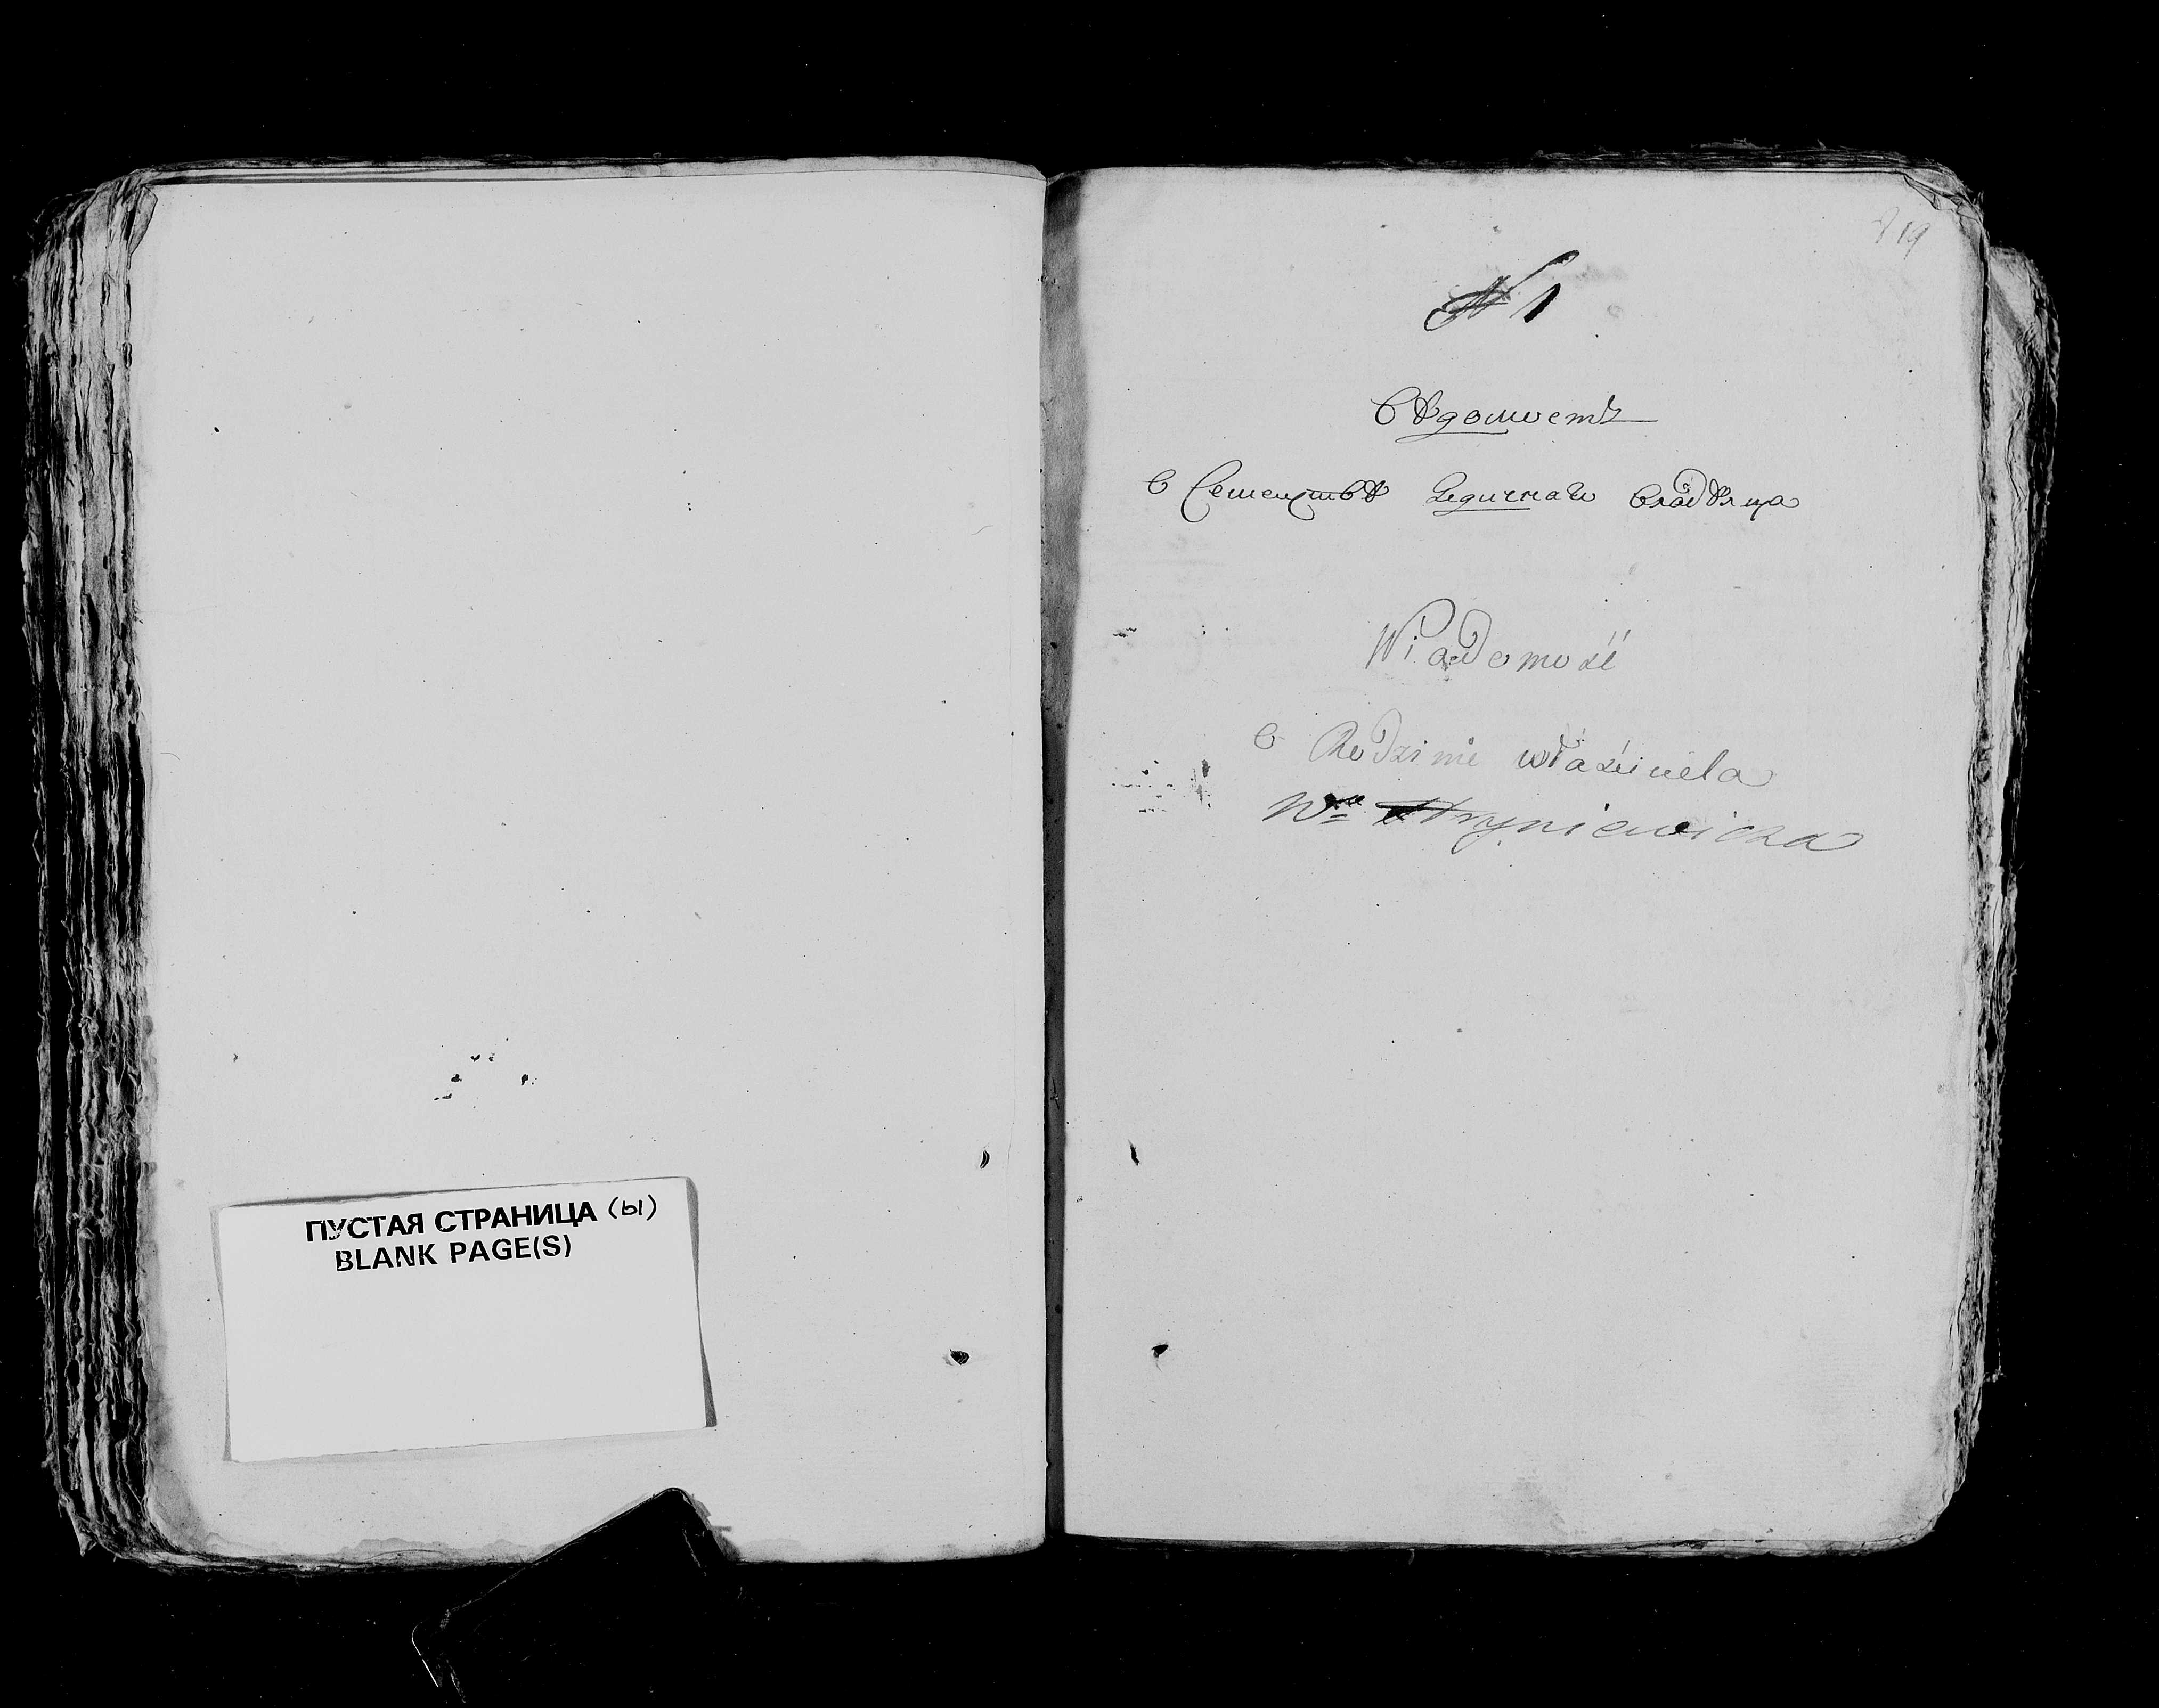 ПУСТАЯ СТРАНИЦА (ы)
BLANK PAGE(S)
819
№ 1
Вѣдомость
О Семействѣ владѣлца
Wiadomość
O Rodzinie właściciela
Wo Hryniewicza